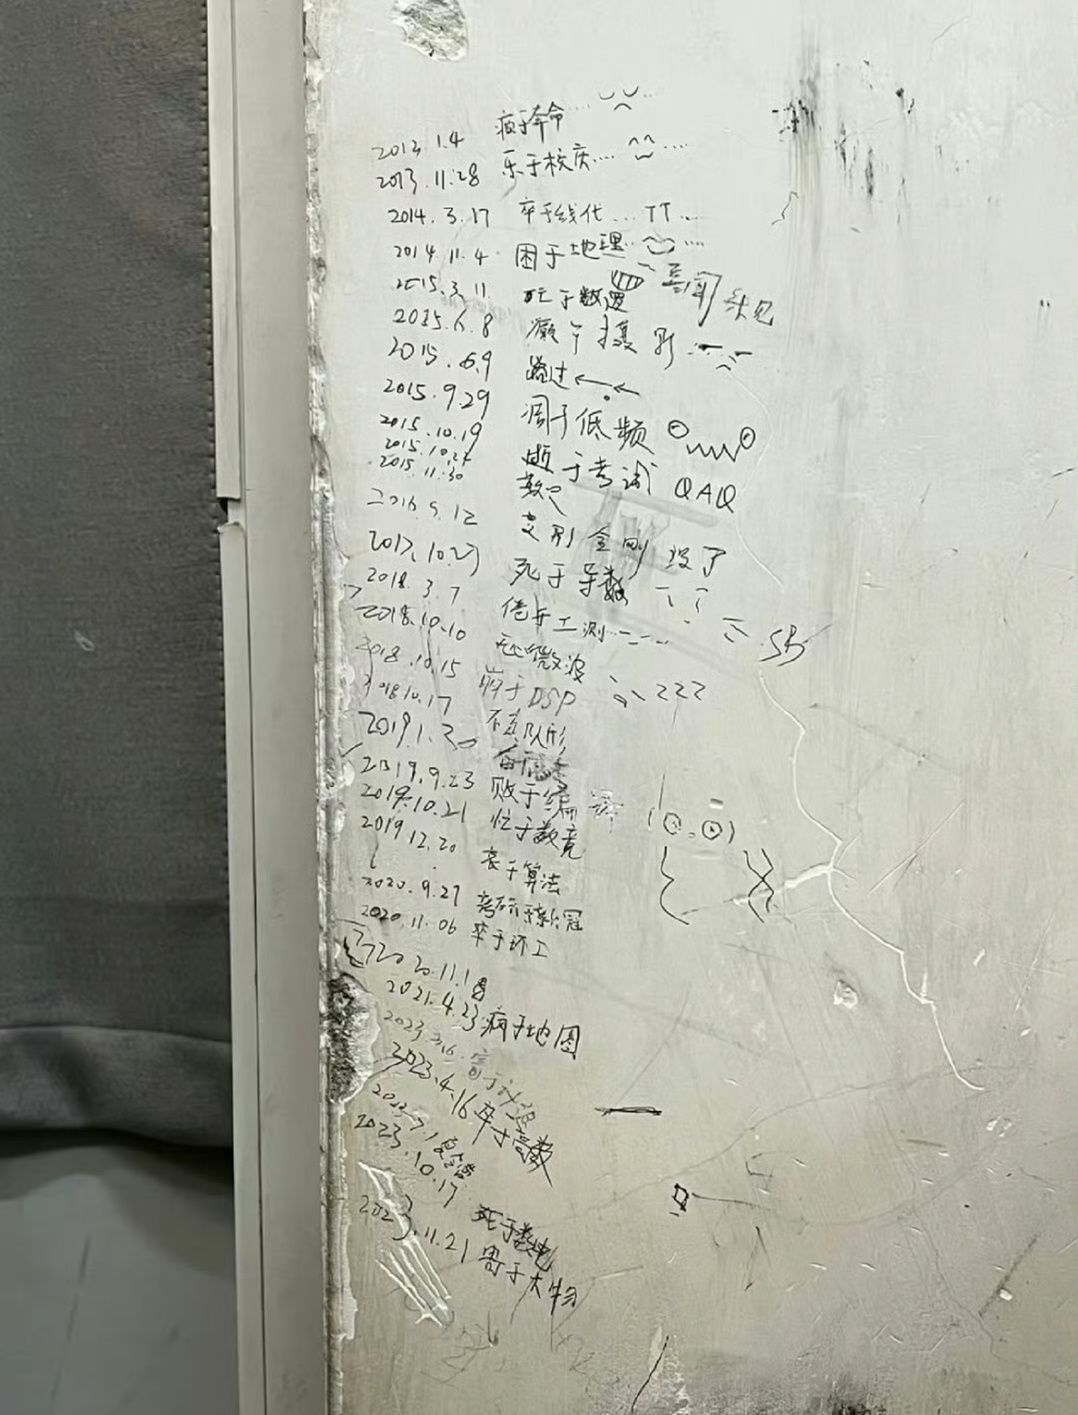 2013.1.4 疯于奔命……
2013.11.28 乐于校庆…… ……
2014.3.17 卒于线代… TT …
2014.11.4 困于地理… ……
2015.3.11 死于数逻
2015.6.8 癫于摄影
2015.6.9 路过
2015.9.29 凋于低频
2015.10.19 逝于考试 QAQ
2015.10.24
2015.11.30
2016.9.12 变形金刚 没了
2017.10.27 死于导数
2018.3.7 倦于工测
SB
2018.10.10 微波
2018.10.15 崩于DSP
2018.10.17 队形
2019.1.20
2019.9.23 败于编译
2019.10.21 忙于数竞
2019.12.20 丧于算法
2020.9.27 考研 新冠
2020.11.06 卒于环工
2020.11.18
2021.4.23 疯于地图
2023.4.16 卒于高数
2023.10.17 死于数电
2023.11.21 寄于大物